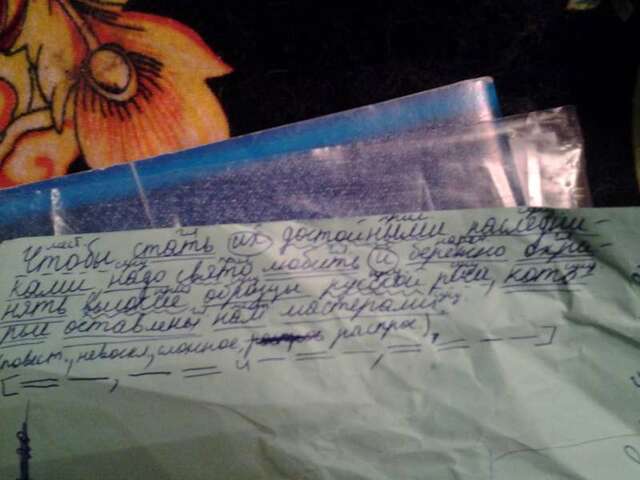 Чтобы стать их достойными наследни-
ками, надо свято любить и бережно охра-
нять высокие образцы русской речи, кото-
рые оставлены нам мастерами.
(повест., невоскл., сложное, распрос.),